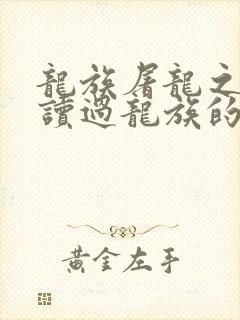 龍族屠龍之
讀過龍族的
黃金左手